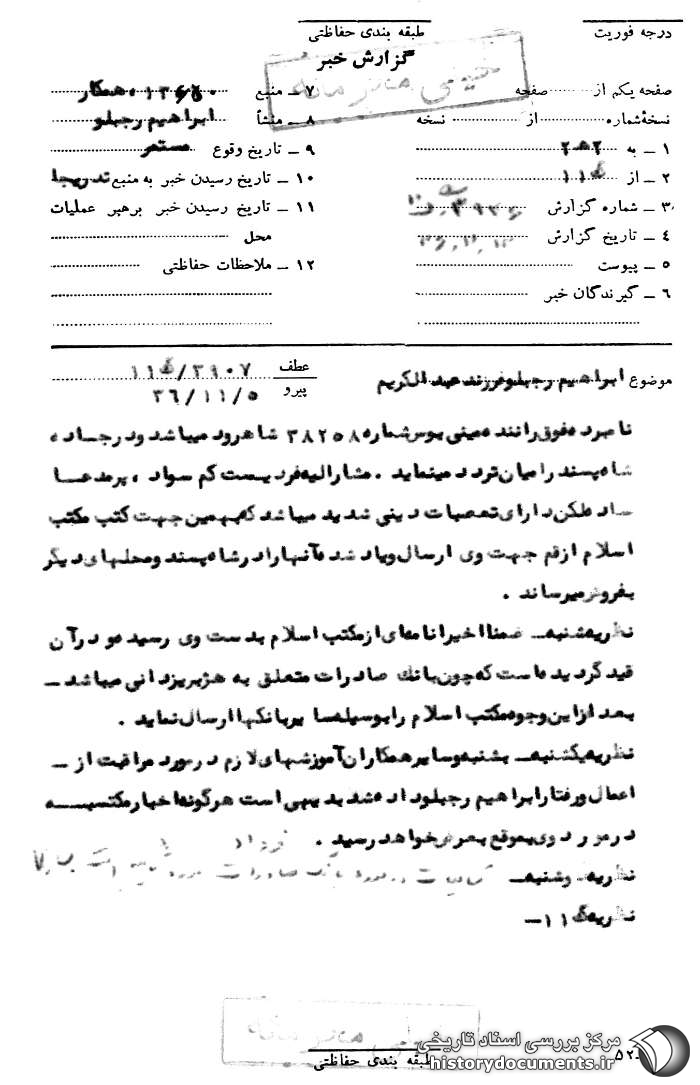 درجه فوریت
طبقه بندی حفاظتی
گزارش خبر
خیلی محرمانه
صفحه یکم از صفحه
نسخهٔ شماره از نسخه
۱ – به ۲۵۲
۲ – از ۱۱ﻫ
۳ – شماره گزارش
۴ – تاریخ گزارش
۵ – پیوست
۶ – گیرندگان خبر
۷ – منبع ۱۳۶۸۰ همکار
۸ – منشأ ابراهیم رجبلو
۹ – تاریخ وقوع مستمر
۱۰ – تاریخ رسیدن خبر به منبع تدریجا
۱۱ – تاریخ رسیدن خبر برهبر عملیات
محل
۱۲ – ملاحظات حفاظتی
موضوع ابراهیم رجبلو فرزند عبدالکریم
عطف ۱۱ﻫ/۳۹۰۷
پیرو ۳۶/۱۱/۵
نامبرده فوق راننده مینی بوس شماره ۳۸۲۵۸ شاهرود میباشد و در جاده
شاه پسند رامیان تردد مینماید . مشارالیه فردیست کم سواد ، پرمدعا
ساده لکن دارای تعصبات دینی شدید میباشد که بهمین جهت کتب مکتب
اسلام از قم جهت وی ارسال و یاد شده آنها را در شاه پسند و محلهای دیگر
بفروش میرساند .
نظریه شنبه – ضمنا اخیرا نامه‌ای از مکتب اسلام بدست وی رسیده و در آن
قید گردیده است که چون بانك صادرات متعلق به هژبر یزدانی میباشد –
بعد از این وجوه مکتب اسلام را بوسیله سایر بانکها ارسال نماید .
نظریه یکشنبه – بشنبه و سایر همکاران آموزشهای لازم در مورد مراقبت از –
اعمال و رفتار ابراهیم رجبلو داده شد بدیهی است هرگونه اخبار مکتسبه
در مورد وی بموقع بعرض خواهد رسید .
نظریه دوشنبه –
نظریه ۱۱ﻫ –
طبقه بندی حفاظتی
۵۲
مرکز بررسی اسناد تاریخی
historydocuments.ir